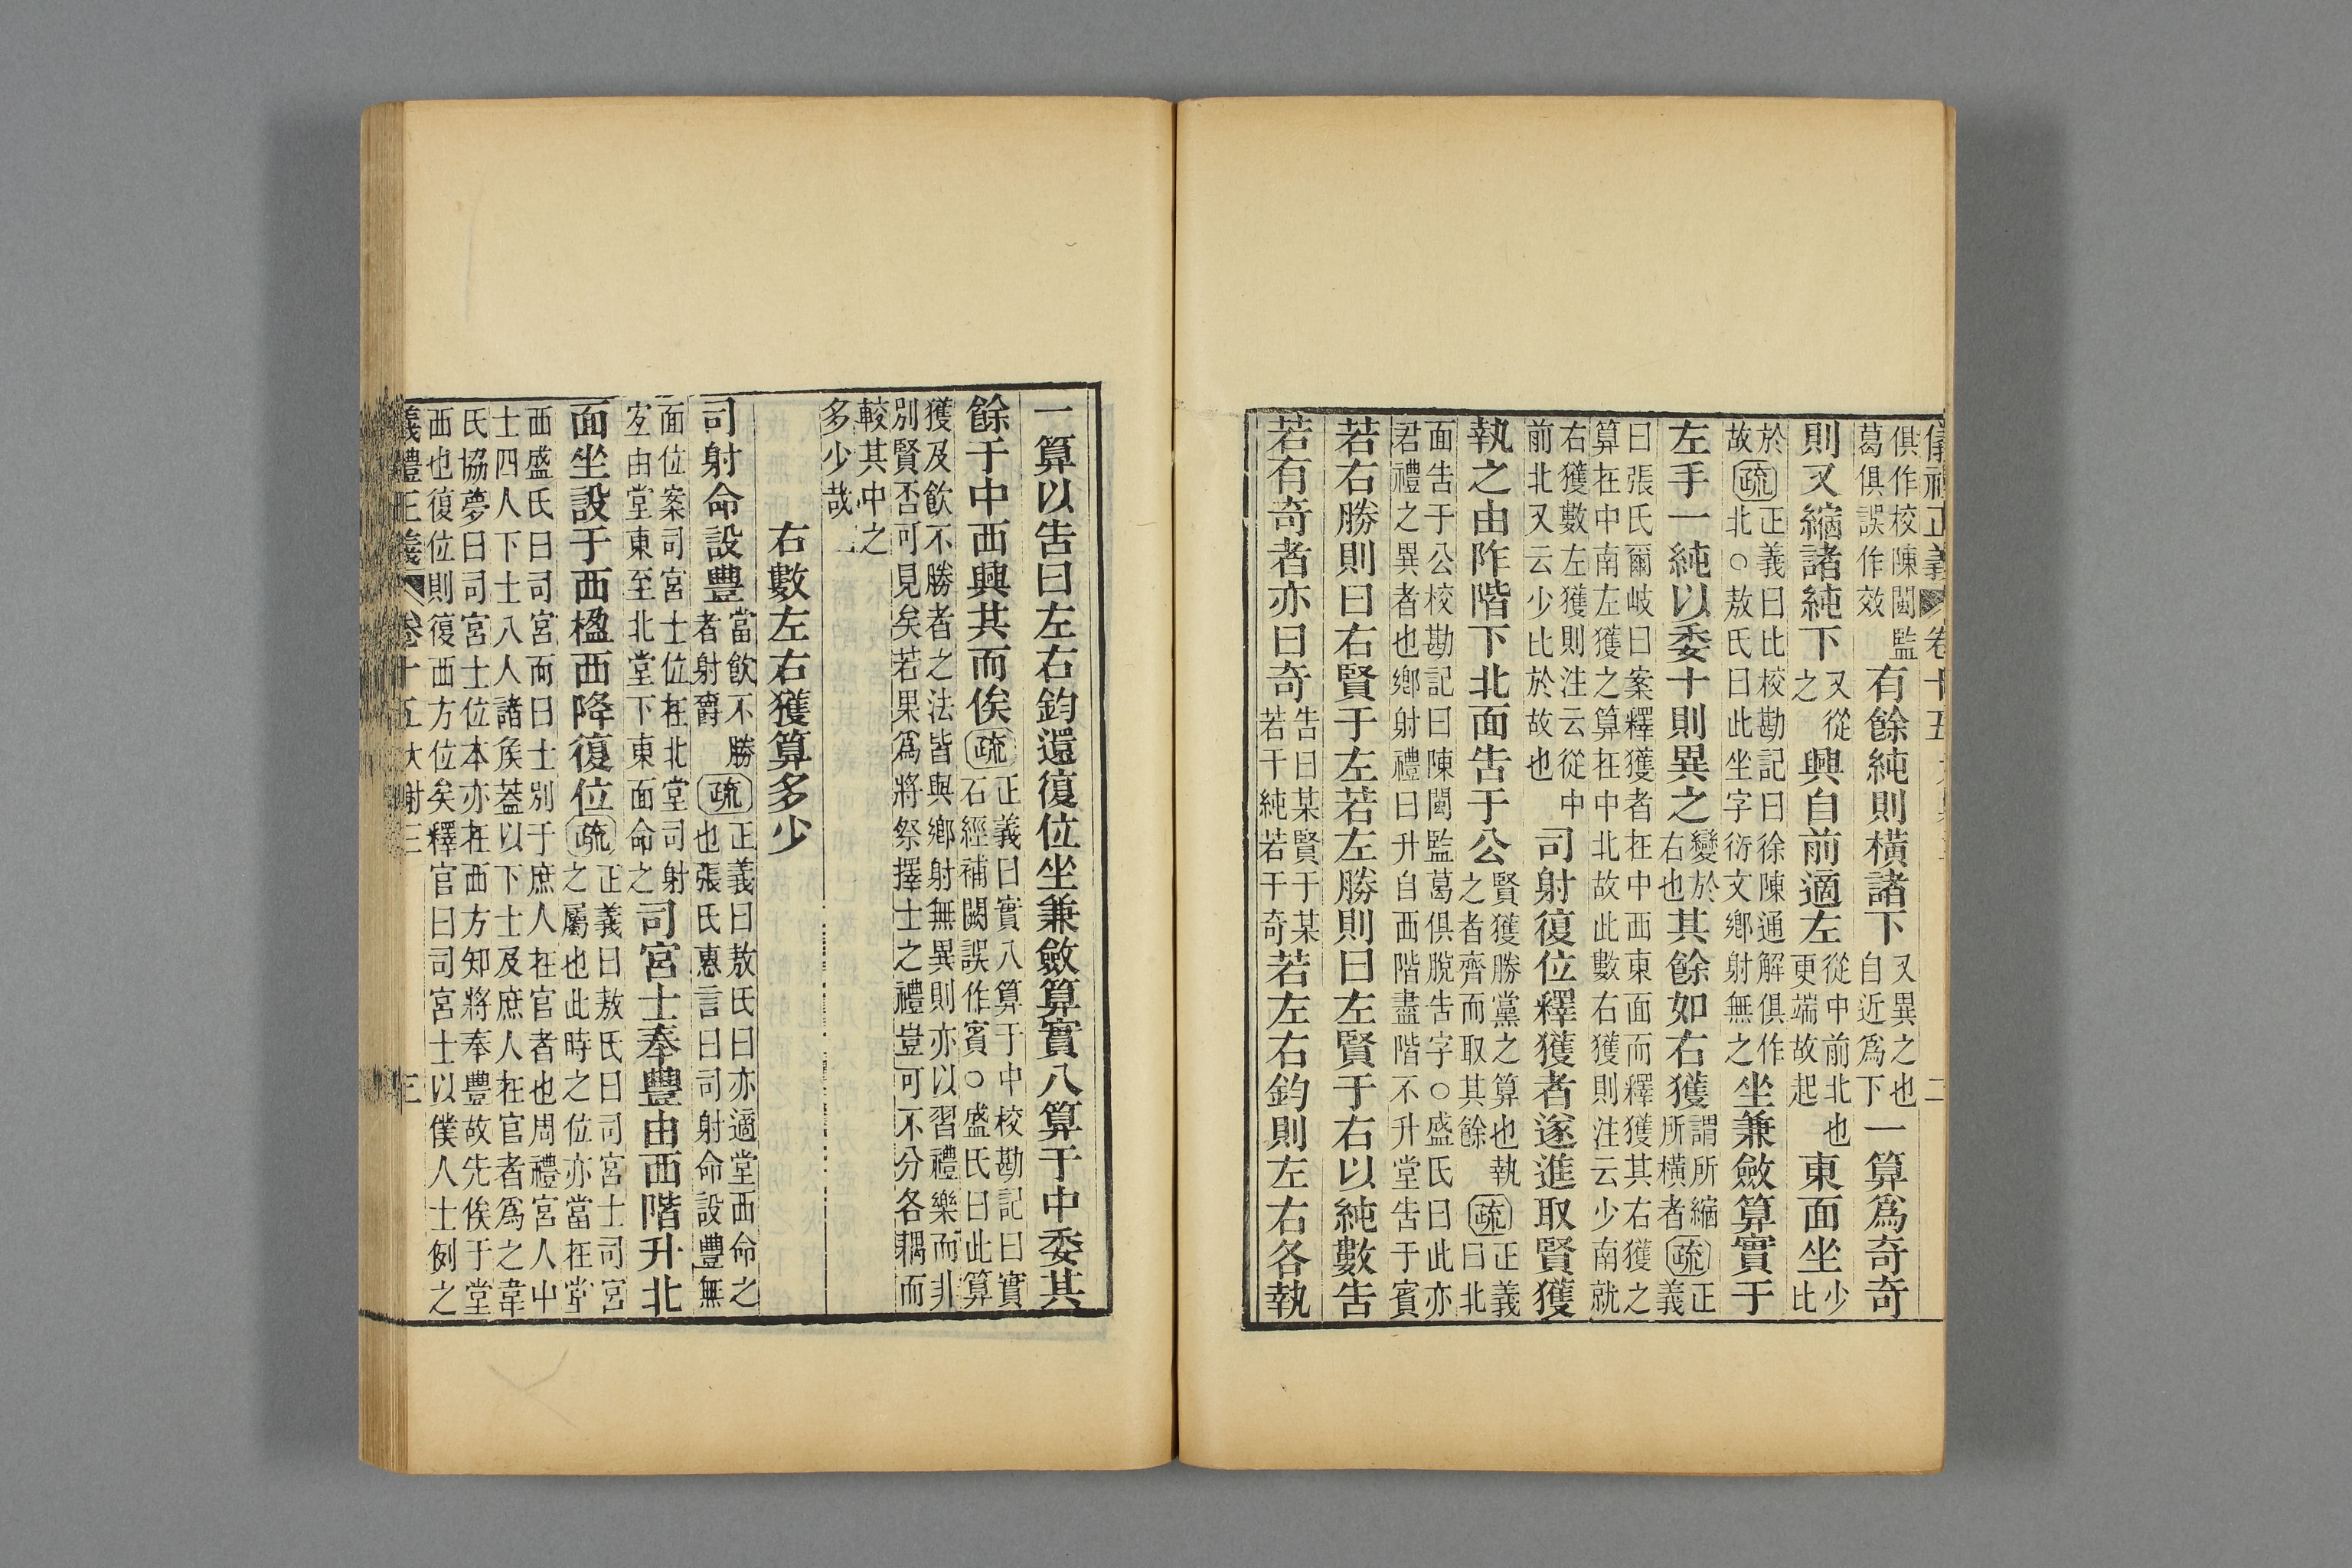 儀禮正義 卷十五 二
俱作校陳閩監
葛俱誤作效
有餘純則橫諸下
又異之也
自近爲下
一算爲奇奇
則又縮諸純下
又從
之
興自前適左
從中前北也
更端故起
東面坐
少
比
於
故
疏
正義曰比校勘記曰徐陳通解俱作
北○敖氏曰此坐字衍文鄉射無之
坐兼斂算實于
左手一純以委十則異之
變於
右也
其餘如右獲
謂所縮
所橫者
疏
正
義
曰張氏爾岐曰案釋獲者在中西東面而釋獲其右獲之
算在中南左獲之算在中北故此數右獲則注云少南就
右獲數左獲則注云從中
前北又云少比於故也
司射復位釋獲者遂進取賢獲
執之由阼階下北面告于公
賢獲勝黨之算也執
之者齊而取其餘
疏
正義
曰北
面告于公校勘記曰陳閩監葛俱脫告字○盛氏曰此亦
君禮之異者也鄉射禮曰升自西階盡階不升堂告于賓
若右勝則曰右賢于左若左勝則曰左賢于右以純數告
若有奇者亦曰奇
告曰某賢于某
若干純若干奇
若左右鈞則左右各執
一算以告曰左右鈞還復位坐兼斂算實八算于中委其
餘于中西興共而俟
疏
正義曰實八算于中校勘記曰實
石經補闕誤作賓○盛氏曰此算
獲及飲不勝者之法皆與鄉射無異則亦以習禮樂而非
別賢否可見矣若果爲將祭擇士之禮豈可不分各耦而
較其中之
多少哉
右數左右獲算多少
司射命設豐
當飲不勝
者射爵
疏
正義曰敖氏曰亦適堂西命之
也張氏惠言曰司射命設豐無
面位案司宮士位在北堂司射
宜由堂東至北堂下東面命之
司宮士奉豐由西階升北
面坐設于西楹西降復位
疏
正義曰敖氏曰司宮士司宮
之屬也此時之位亦當在堂
西盛氏曰司宮而曰士別于庶人在官者也周禮宮人中
士四人下士八人諸矦葢以下士及庶人在官者爲之韋
氏協夢曰司宮士位本亦在西方知將奉豐故先俟于堂
西也復位則復西方位矣釋官曰司宮士以僕人士例之
義禮正義 卷十五大射三 三